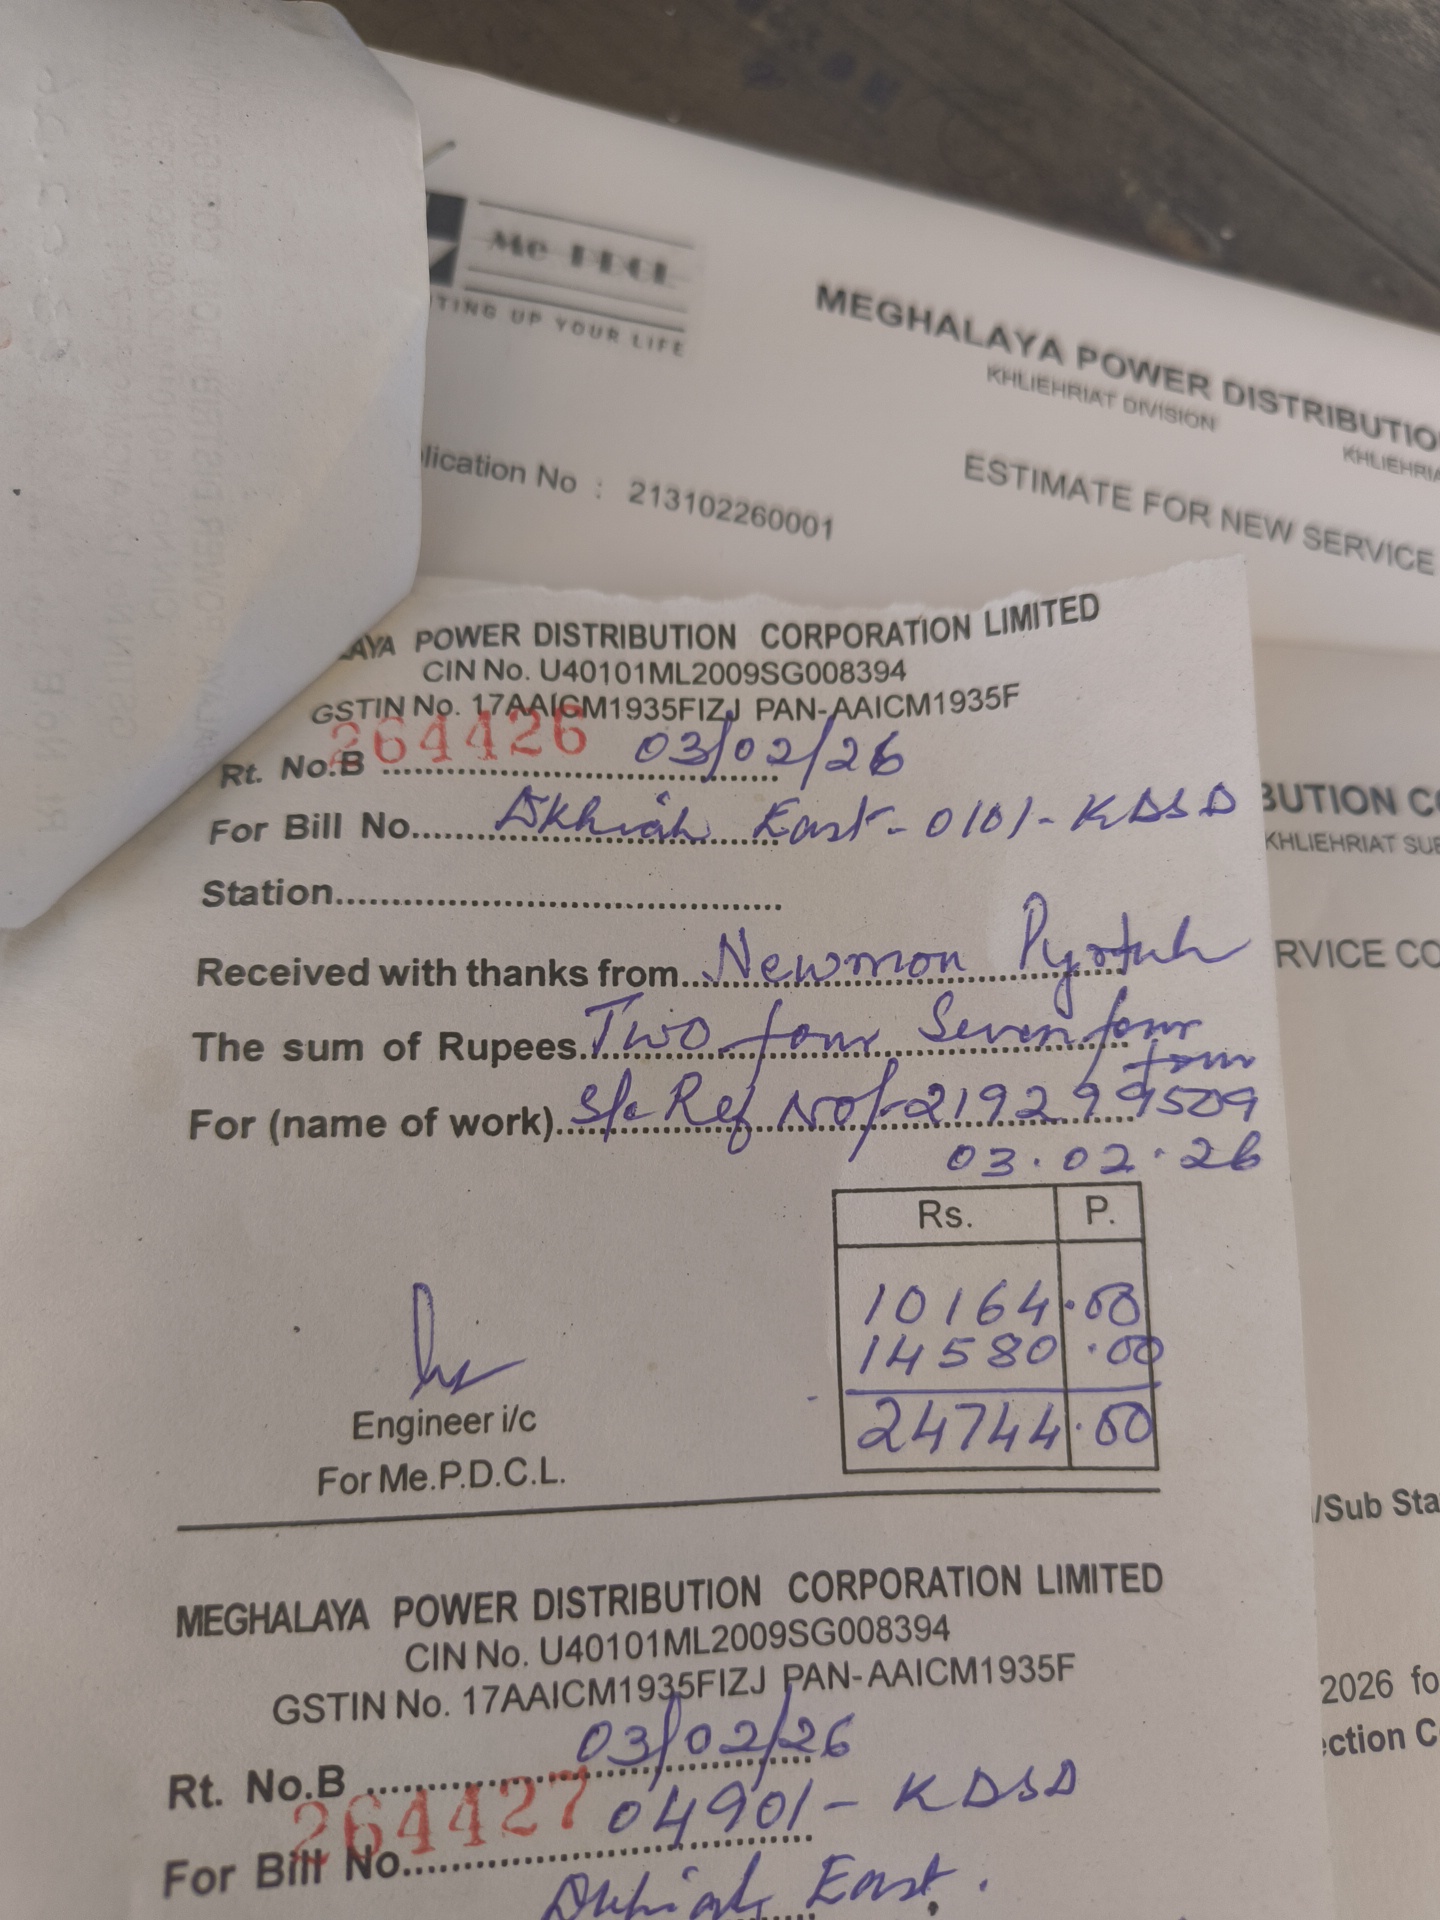 Me PDCL
TING UP YOUR LIFE
MEGHALAYA POWER DISTRIBUTIO
KHLIEHRIAT DIVISION
KHLIEHRIA
lication No : 213102260001
ESTIMATE FOR NEW SERVICE
LAYA POWER DISTRIBUTION CORPORATION LIMITED
CIN No. U40101ML2009SG008394
GSTIN No. 17AAICM1935FIZJ PAN-AAICM1935F
Rt. No.B 264426 03/02/26
For Bill No. Dkhiah East - 0101 - KDSD
Station
Received with thanks from Newmon Pyrtuh
The sum of Rupees Two four Seven four
four
For (name of work) S/c Ref No/- 219299509
03.02.26
Rs. P.
10164.00
14580.00
24744.00
Engineer i/c
For Me.P.D.C.L.
BUTION CO
KHLIEHRIAT SUB
RVICE CO
/Sub Sta
2026 fo
ection C
MEGHALAYA POWER DISTRIBUTION CORPORATION LIMITED
CIN No. U40101ML2009SG008394
GSTIN No. 17AAICM1935FIZJ PAN-AAICM1935F
Rt. No.B 03/02/26
264427
For Bill No. 04901 - KDSD
Dkhiah East.